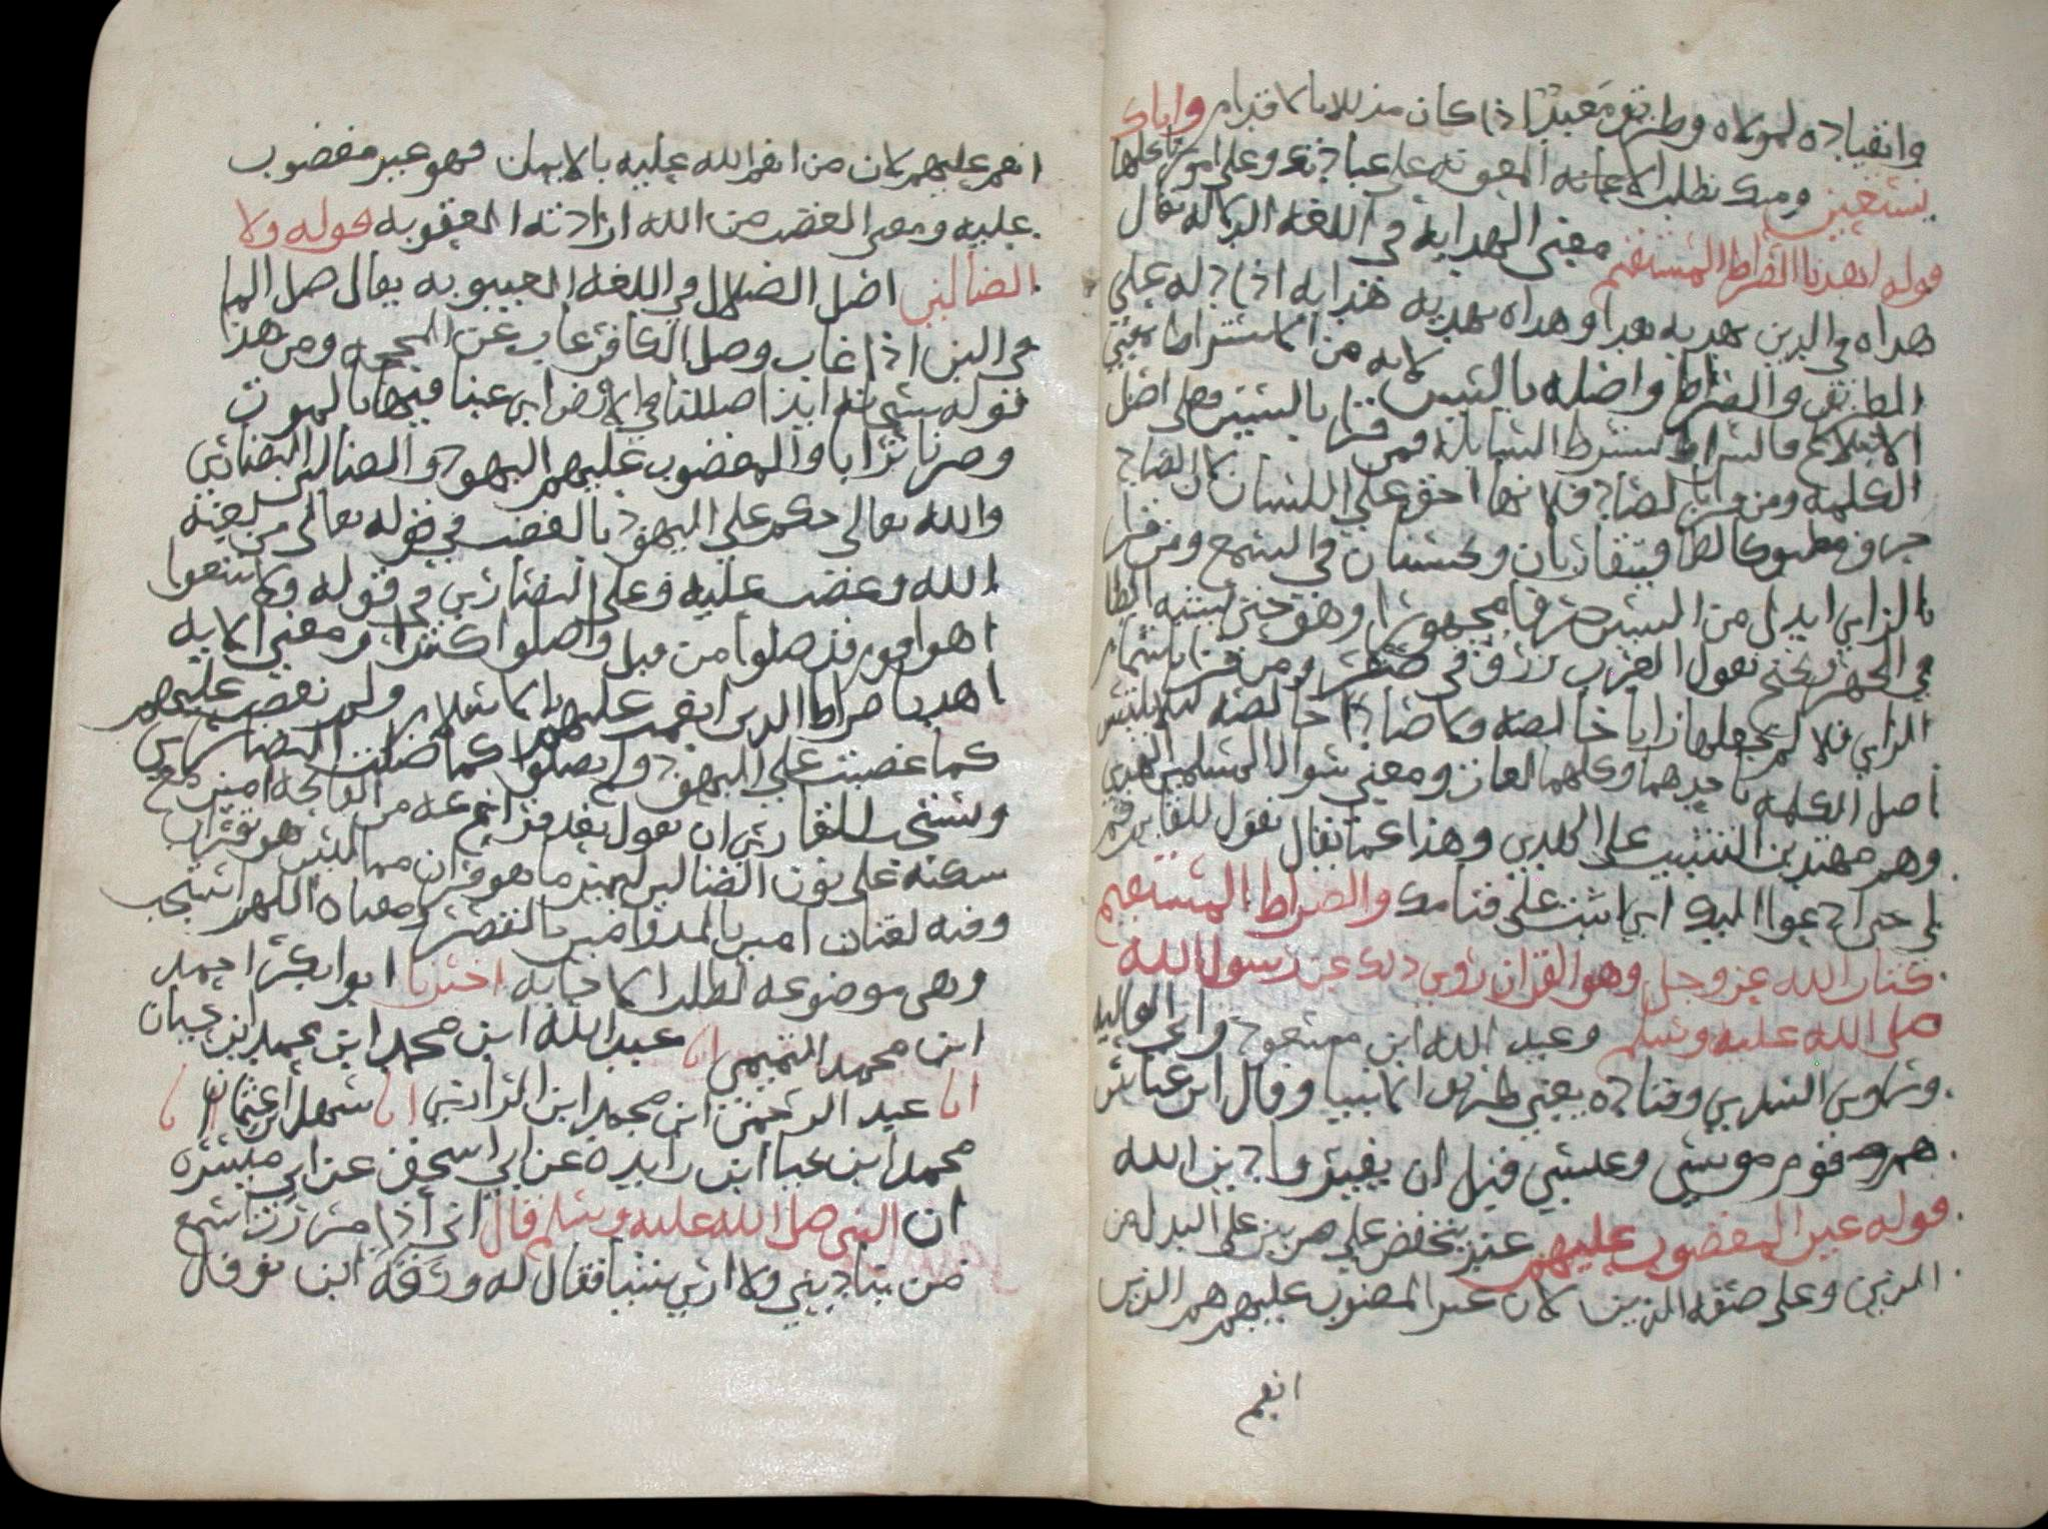 وانقياده لمولاه وطريق معبد اذا كان مذللا بالاقدام واياك
نستعين ومنك نطلب الاعانه المعونه على عبادتك وعلى امورنا كلها
قوله اهدنا الصراط المستقيم معنى الهدايه في اللغه الدلاله يقال
هداه في الدين يهديه هدا وهداه يهديه هدايه اذا دله على
الطريق والصراط واصله بالسين لانه من الاستراط بمعنى
الابتلاع فالسراط يسترط السابله فمن قرا بالسين فعلى اصل
الكلمه ومن قرا بالصاد فلانها اخف على اللسان لان الصاد
حرف مطبق كالطا فيتقاربان ويحسنان في السمع ومن قرا
بالزاي ابدل من السين حرفا مجهورا وهو حتى يشبه الطا
في الجهر ويحتج بقول العرب زقر في صقر ومن قرا باشمام
الزاي فلانه لم يجعلها زايا خالصه ولا صادا خالصه ليلا يلتبس
اصل الكلمه باحدهما وكلهما لغات ومعنى سوال المسلمين الهدى
وهم مهتدين التثبيت على الدين وهذا كما يقال تقول للقايم قم
لي حتى ادعوا اليك اي اثبت على قيامك والصراط المستقيم
كتاب الله عز وجل وهو القران روي ذلك عن رسول الله
صلى الله عليه وسلم وعبد الله ابن مسعود وابي العاليه
وروى السدي وقتاده يعني طريق الانبيا وقال ابن عباس
هم قوم موسى وعيسى قبل ان يغيروا دين الله
قوله غير المغضوب عليهم غير يخفض على ضربين على البدل من
الذين وعلى صفه الذين لان غير المغضوب عليهم هم الذين
انعم
انعم عليهم لان من انعم الله عليه بالايمان فهو غير مغضوب
عليه ومعنى الغضب من الله ارادته العقوبه قوله ولا
الضالين اصل الضلال في اللغه الغيبوبه يقال ضل الما
في اللبن اذا غاب وضل الكافر غاب عن المحجه ومن هذا
قوله ايذا ضللنا في الارض اي غبنا فيها بالموت
وصرنا ترابا والمغضوب عليهم اليهود والضالين النصارى
والله تعالى حكم على اليهود بالغضب في قوله تعالى من لعنه
الله وغضب عليه وعلى النصارى في قوله ولا تتبعوا
اهوا قوم قد ضلوا من قبل واضلوا كثيرا ومعنى الايه
اهدنا صراط الذين انعمت عليهم بالاسلام ولم تغضب عليهم
كما غضبت على اليهود ولم يضلوا كما ضلت النصارى
ويستحب للقارئ ان يقول بعد فراغه من الفاتحه امين مع
سكته على نون الضالين ليميز ما هو قران مما ليس هو بقران
وفيه لغتان امين بالمد وامين بالقصر ومعناه اللهم استجب
وهي موضوعه لطلب الاجابه اخبرنا ابوا بكر احمد
ابن محمد التميمي انا عبد الله ابن محمد ابن محمد ابن حيان
انا عبد الرحمن ابن محمد ابن الرازي انا سهل ابن عثمان انا
محمد ابن يحيا ابن زايده عن ابي اسحق عن ابي ميسره
ان النبي صلى الله عليه وسلم قال اني اذا برزت اسمع
من يناديني ولا ارى شيا فقال له ورقه ابن نوفل